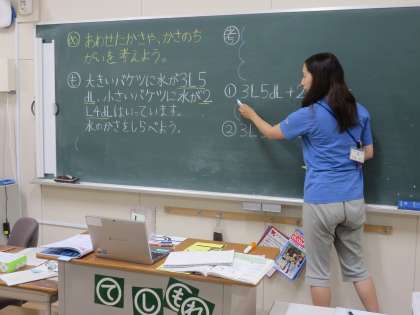 め あわせたかさや、かさのち
がいを考えよう。
も 大きいバケツに水が3L5
dL、小さいバケツに水が2
L4dLはいっています。
水のかさをしらべよう。
考
① 3L5dL+2
② 3L
てしもれ